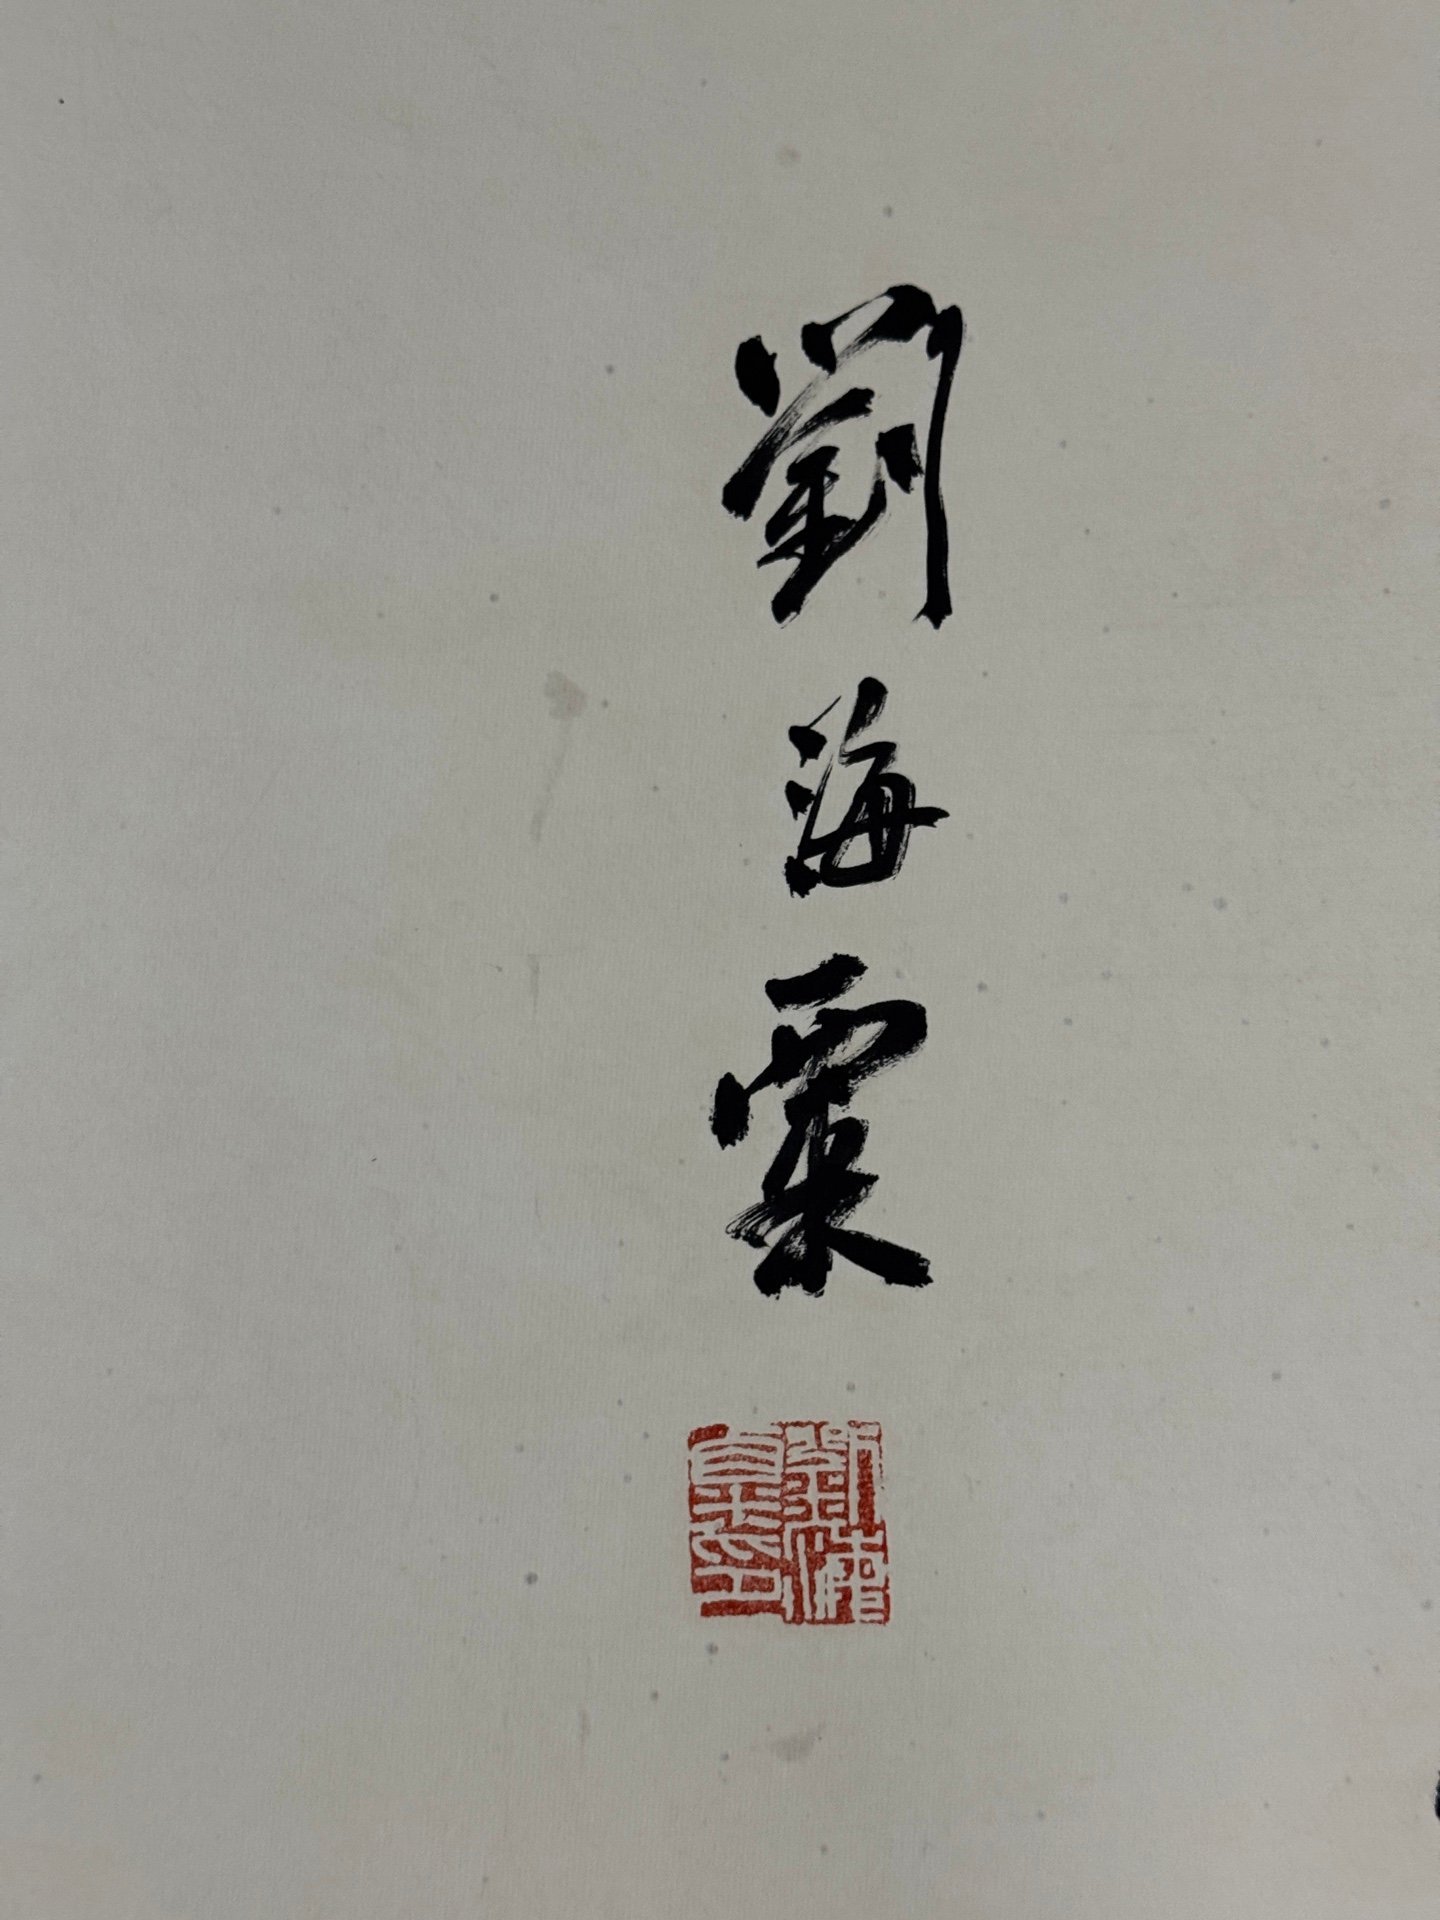 劉海粟
劉海粟印